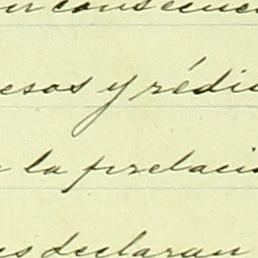 en consecuen
esos y rédi
a la prelaci
es declaran